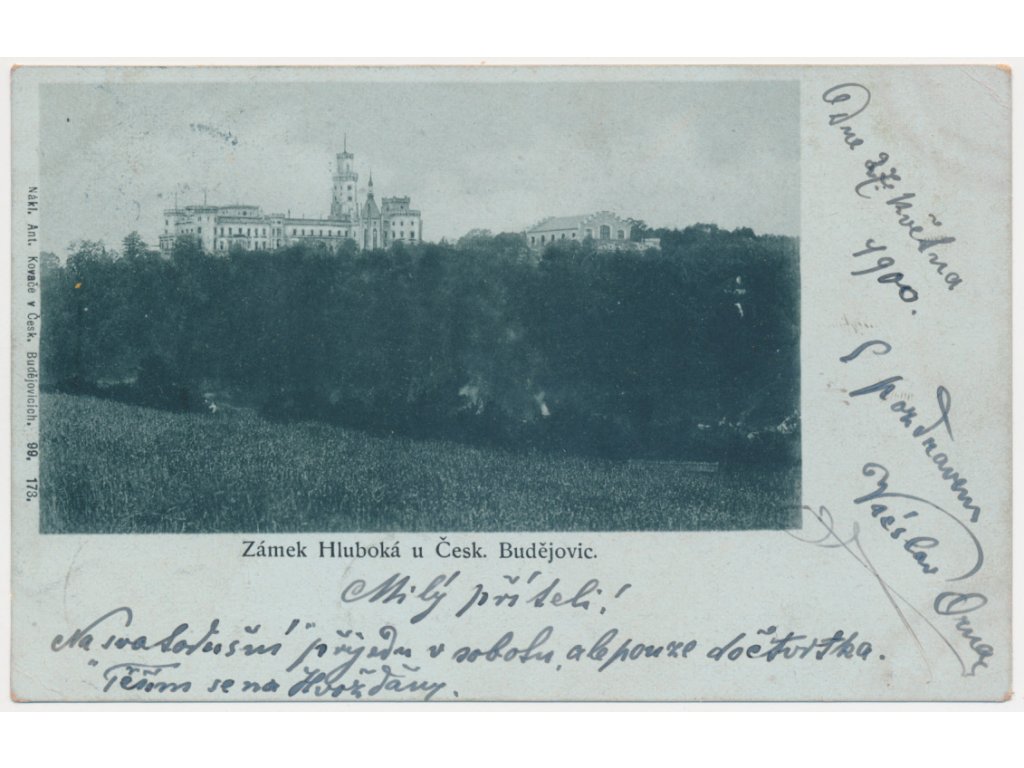 Nákl. Ant. Kovače v Česk. Budějovicích. 99. 173.
Zámek Hluboká u Česk. Budějovic.
Milý příteli!
Na svatodušní přijedu v sobotu, ale pouze do čtvrtka.
Těším se na Hvožďány.
Dne 27. Května
1900.
S pozdravem